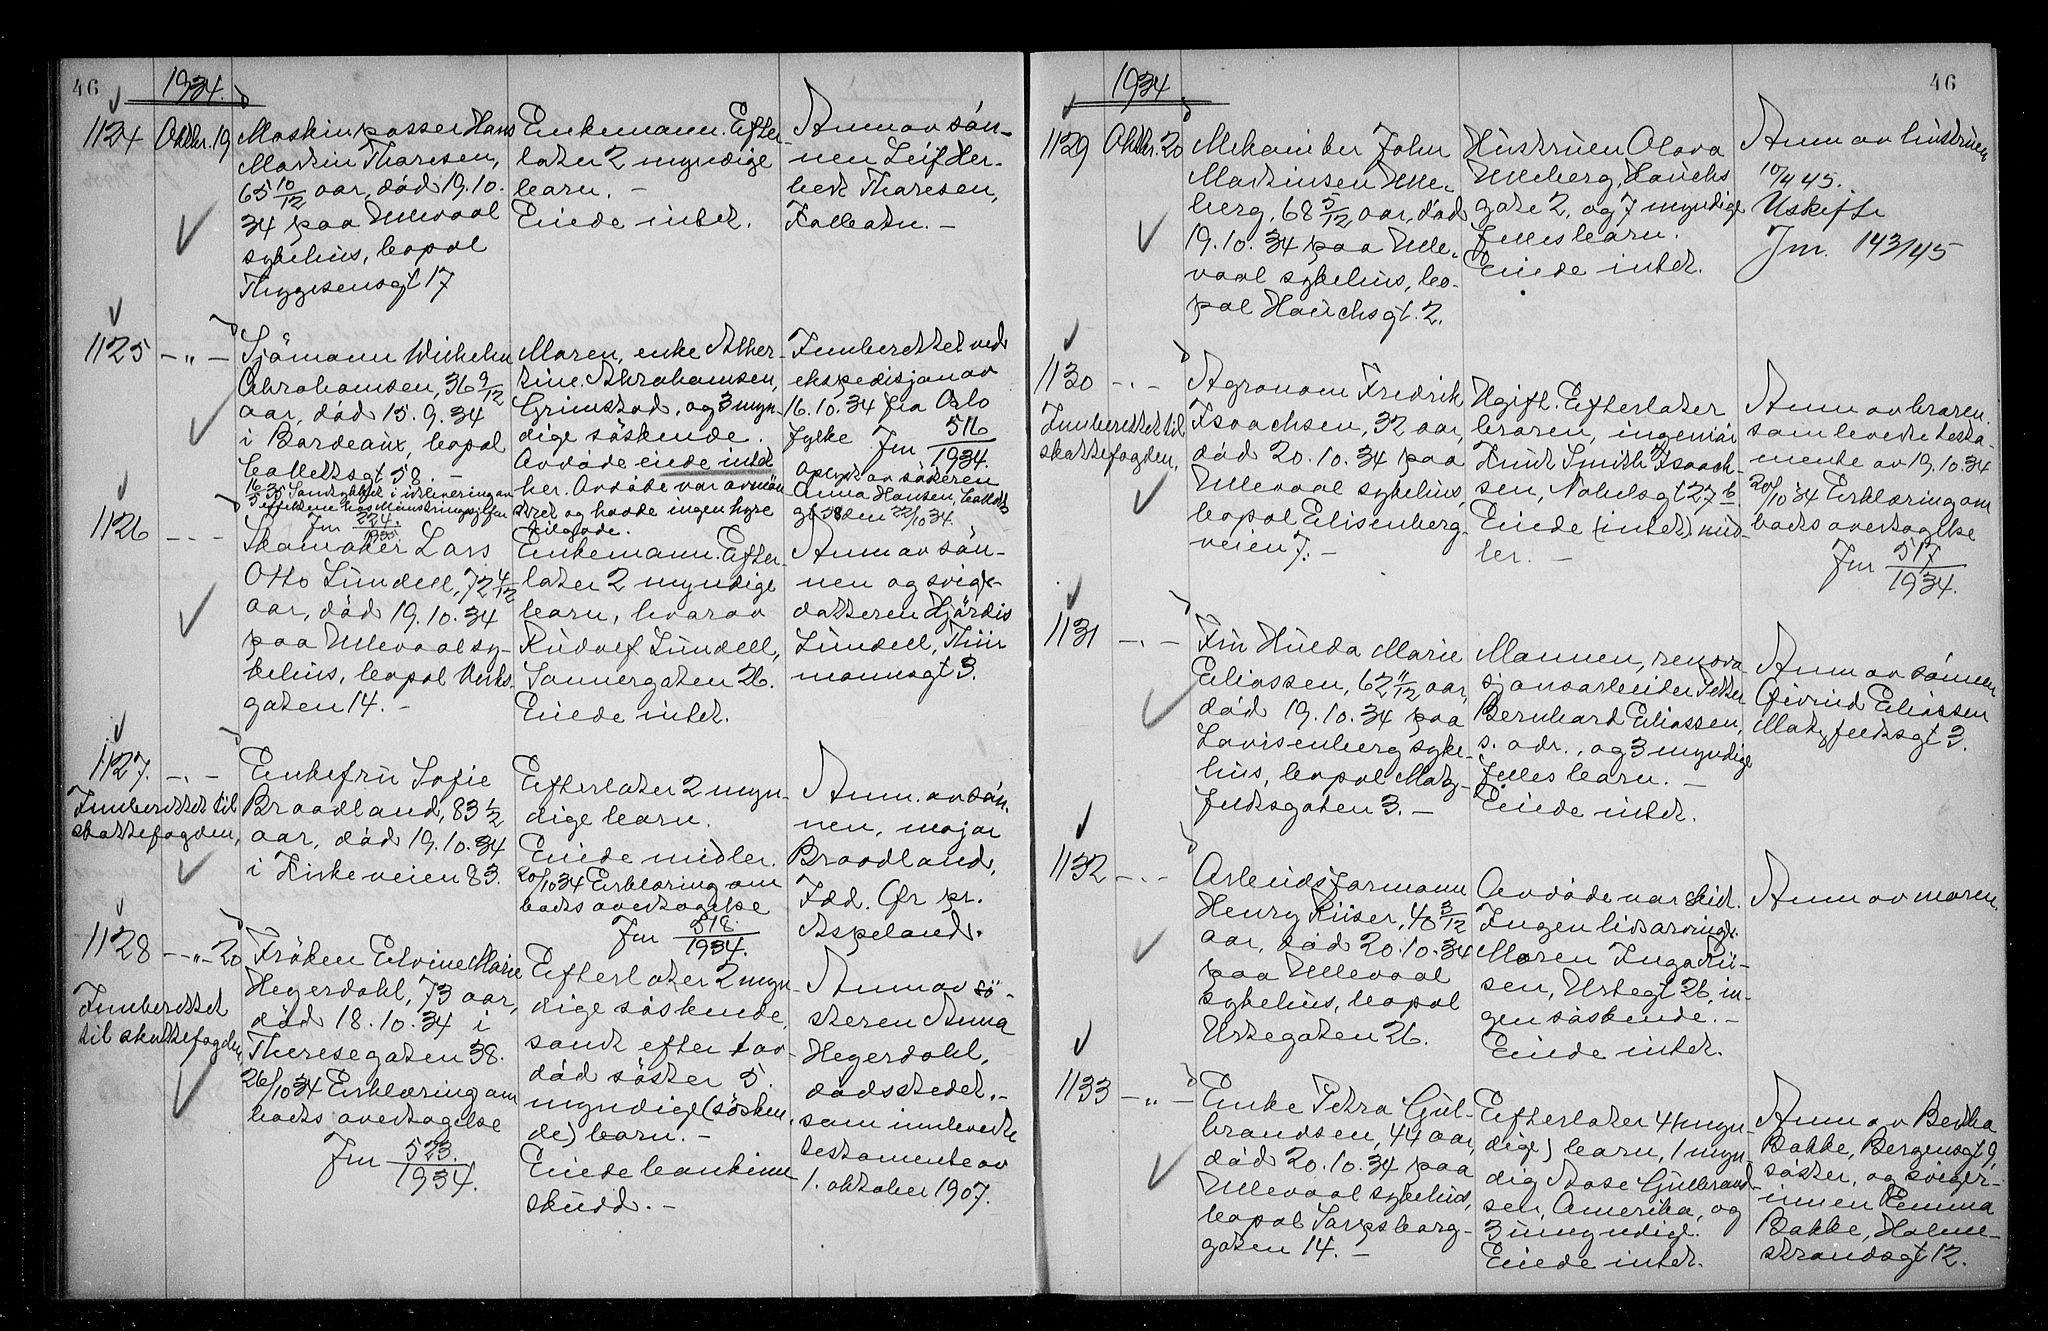 46
1934.
1124
Oktbr. 19
Maskinpasser Hans
Martin Thoresen,
65 10/12 aar, död 19.10.
34 paa Ullevaal
sykehus, bopæl
Thygesensgt 17
Enkemann. Efter-
later 2 myndige
barn. -
Eiede intet.
Anm av søn-
nen Leif Her-
bert Thoresen,
1125
- " -
Sjömann Wilhelm
Abrahamsen, 36 9/12
aar, död 15.9.34
i Bordeaux, bopæl
16/5 35 Samtykket i utlevering av
effektene hos
Jm 224./1935
Moren, enke Alber-
tine Abrahamsen,
Grimstad, og 3 myn-
dige söskende.
Avdöde eiede intet
her. Avdöde var avmön-
stret og hadde ingen hyre
tilgode.
Innberettet ved
ekspedisjon av
16.10.34 fra Oslo
fylke Jm 516/1934.
av søsteren
Anna Hansen,
gt 58 den 22/10 34.
1126
- " -
Skomaker Lars
Otto Lundell, 72 4/12
aar, död 19.10.34
paa Ullevaal sy-
kehus, bopæl
gaten 14. -
Enkemann. Efter-
later 2 myndige
barn, hvorav
Rudolf Lundell,
Sannergaten 26.
Eiede intet.
Anm av søn-
nen og sviger-
datteren Hjördis
Lundell,
mannsgt 3.
1127.
- " -
Innberettet til
skattefogden,
Enkefru Sofie
Braadland, 83 1/2
aar, död 19.10.34
i Kirkeveien 83.
Efterlater 2 myn-
dige barn.
Eiede midler.
20/10 34 Erklæring om
boets overtagelse
Jm 518./1934.
Anm. av søn-
nen, major
Braadland,
Idd. Ør pr.
Aspeland.
1128
- " - 20
Innberettet
til skattefogden,
Fröken Elvine Marie
Hegerdahl, 73 aar,
död 18.10.34 i
Theresegaten 38.
26/10 34 Erklæring om
boets overtagelse
Jm 523./1934.
Efterlater 2 myn-
dige söskende,
samt efter 1 av-
död söster 5
myndige (sösken-
de) barn. -
Eiede bankinn-
skudd. -
Anm av sö-
steren Anna
Hegerdahl,
dödsstedet. -
som innleverte
testamente av
1. oktober 1907.
46
1934
1129
Oktbr. 20
Mekaniker John
Martinsen Ulle-
berg, 68 5/12 aar, död
19.10.34 paa Ulle-
vaal sykehus, bo-
pæl Hauchsgt. 2.
Hustruen Olava
Ulleberg, Hauchs
gate 2, og 7 myndige
felles barn.
Eiede intet.
Anm av hustruen
10/4 45.
Uskifte
Jm. 143/45
1130
- " -
Innberettet til
skattefogden,
Agronom Fredrik
Isaachsen, 32 aar,
död 20.10.34 paa
Ullevaal sykehus,
bopæl Elisenberg-
veien 7. -
Ugift. Efterlater
broren, ingeniör
Knut Smith Isaach-
sen, Nobelsgt 27 b.
Eiede (intet) mid-
ler. -
Anm av broren
som leverte testa-
mente av 19.10.34
20/10 34 Erklæring om
boets overtagelse
Jm 517/1934.
1131
- " -
Fru Hulda Marie
Eliassen, 62 11/12 aar,
död 19.10.34 paa
Lovisenberg syke-
hus, bopæl Matz-
feltsgaten 3. -
Mannen, renova-
sjonsarbeider Petter
Bernhard Eliassen,
s. adr., og 3 myndige
felles barn. -
Eiede intet.
Anm av sönnen
Øivind Eliassen
Matzfeltsgt 3.
1132
- " -
Arbeidsformann
Henry Kiiser, 40 3/12
aar, död 20.10.34
paa Ullevaal
sykehus, bopæl
Urtegaten 26.
Avdöde var skilt.
Ingen livsarving.
Moren Inga Kii-
sen, Urtegt 26, in-
gen söskende. -
Eiede intet.
Anm av moren.
1133
- " -
Enke Petra Gul-
brandsen, 44 aar,
död 20.10.34 paa
Ullevaal sykehus,
bopæl Sarpsborg-
gaten 14. -
Efterlater 4 (myn-
dige) barn, 1 myn-
dig Aase Gulbrand-
sen, Amerika, og
3 umyndige.
Eiede intet.
Anm av Bertha
Bakke, Bergensgt 9,
söster, og sviger-
innen Emma
Bakke, Holme-
strandsgt 12.